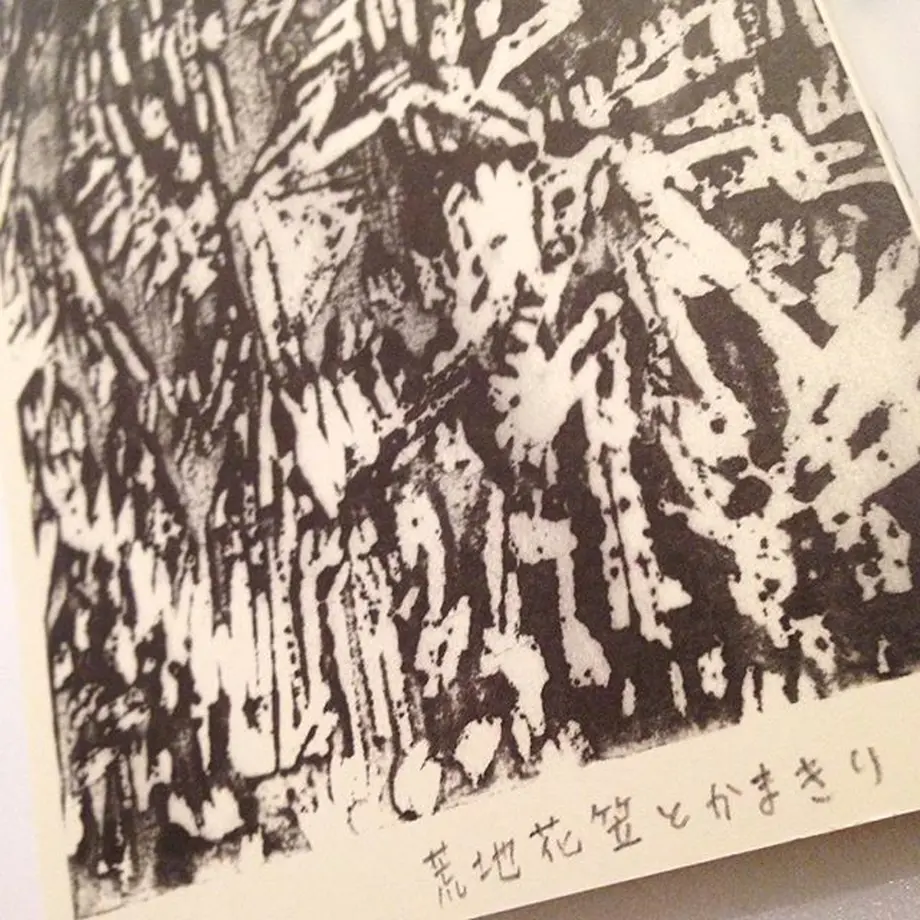 荒地花笠とかまきり